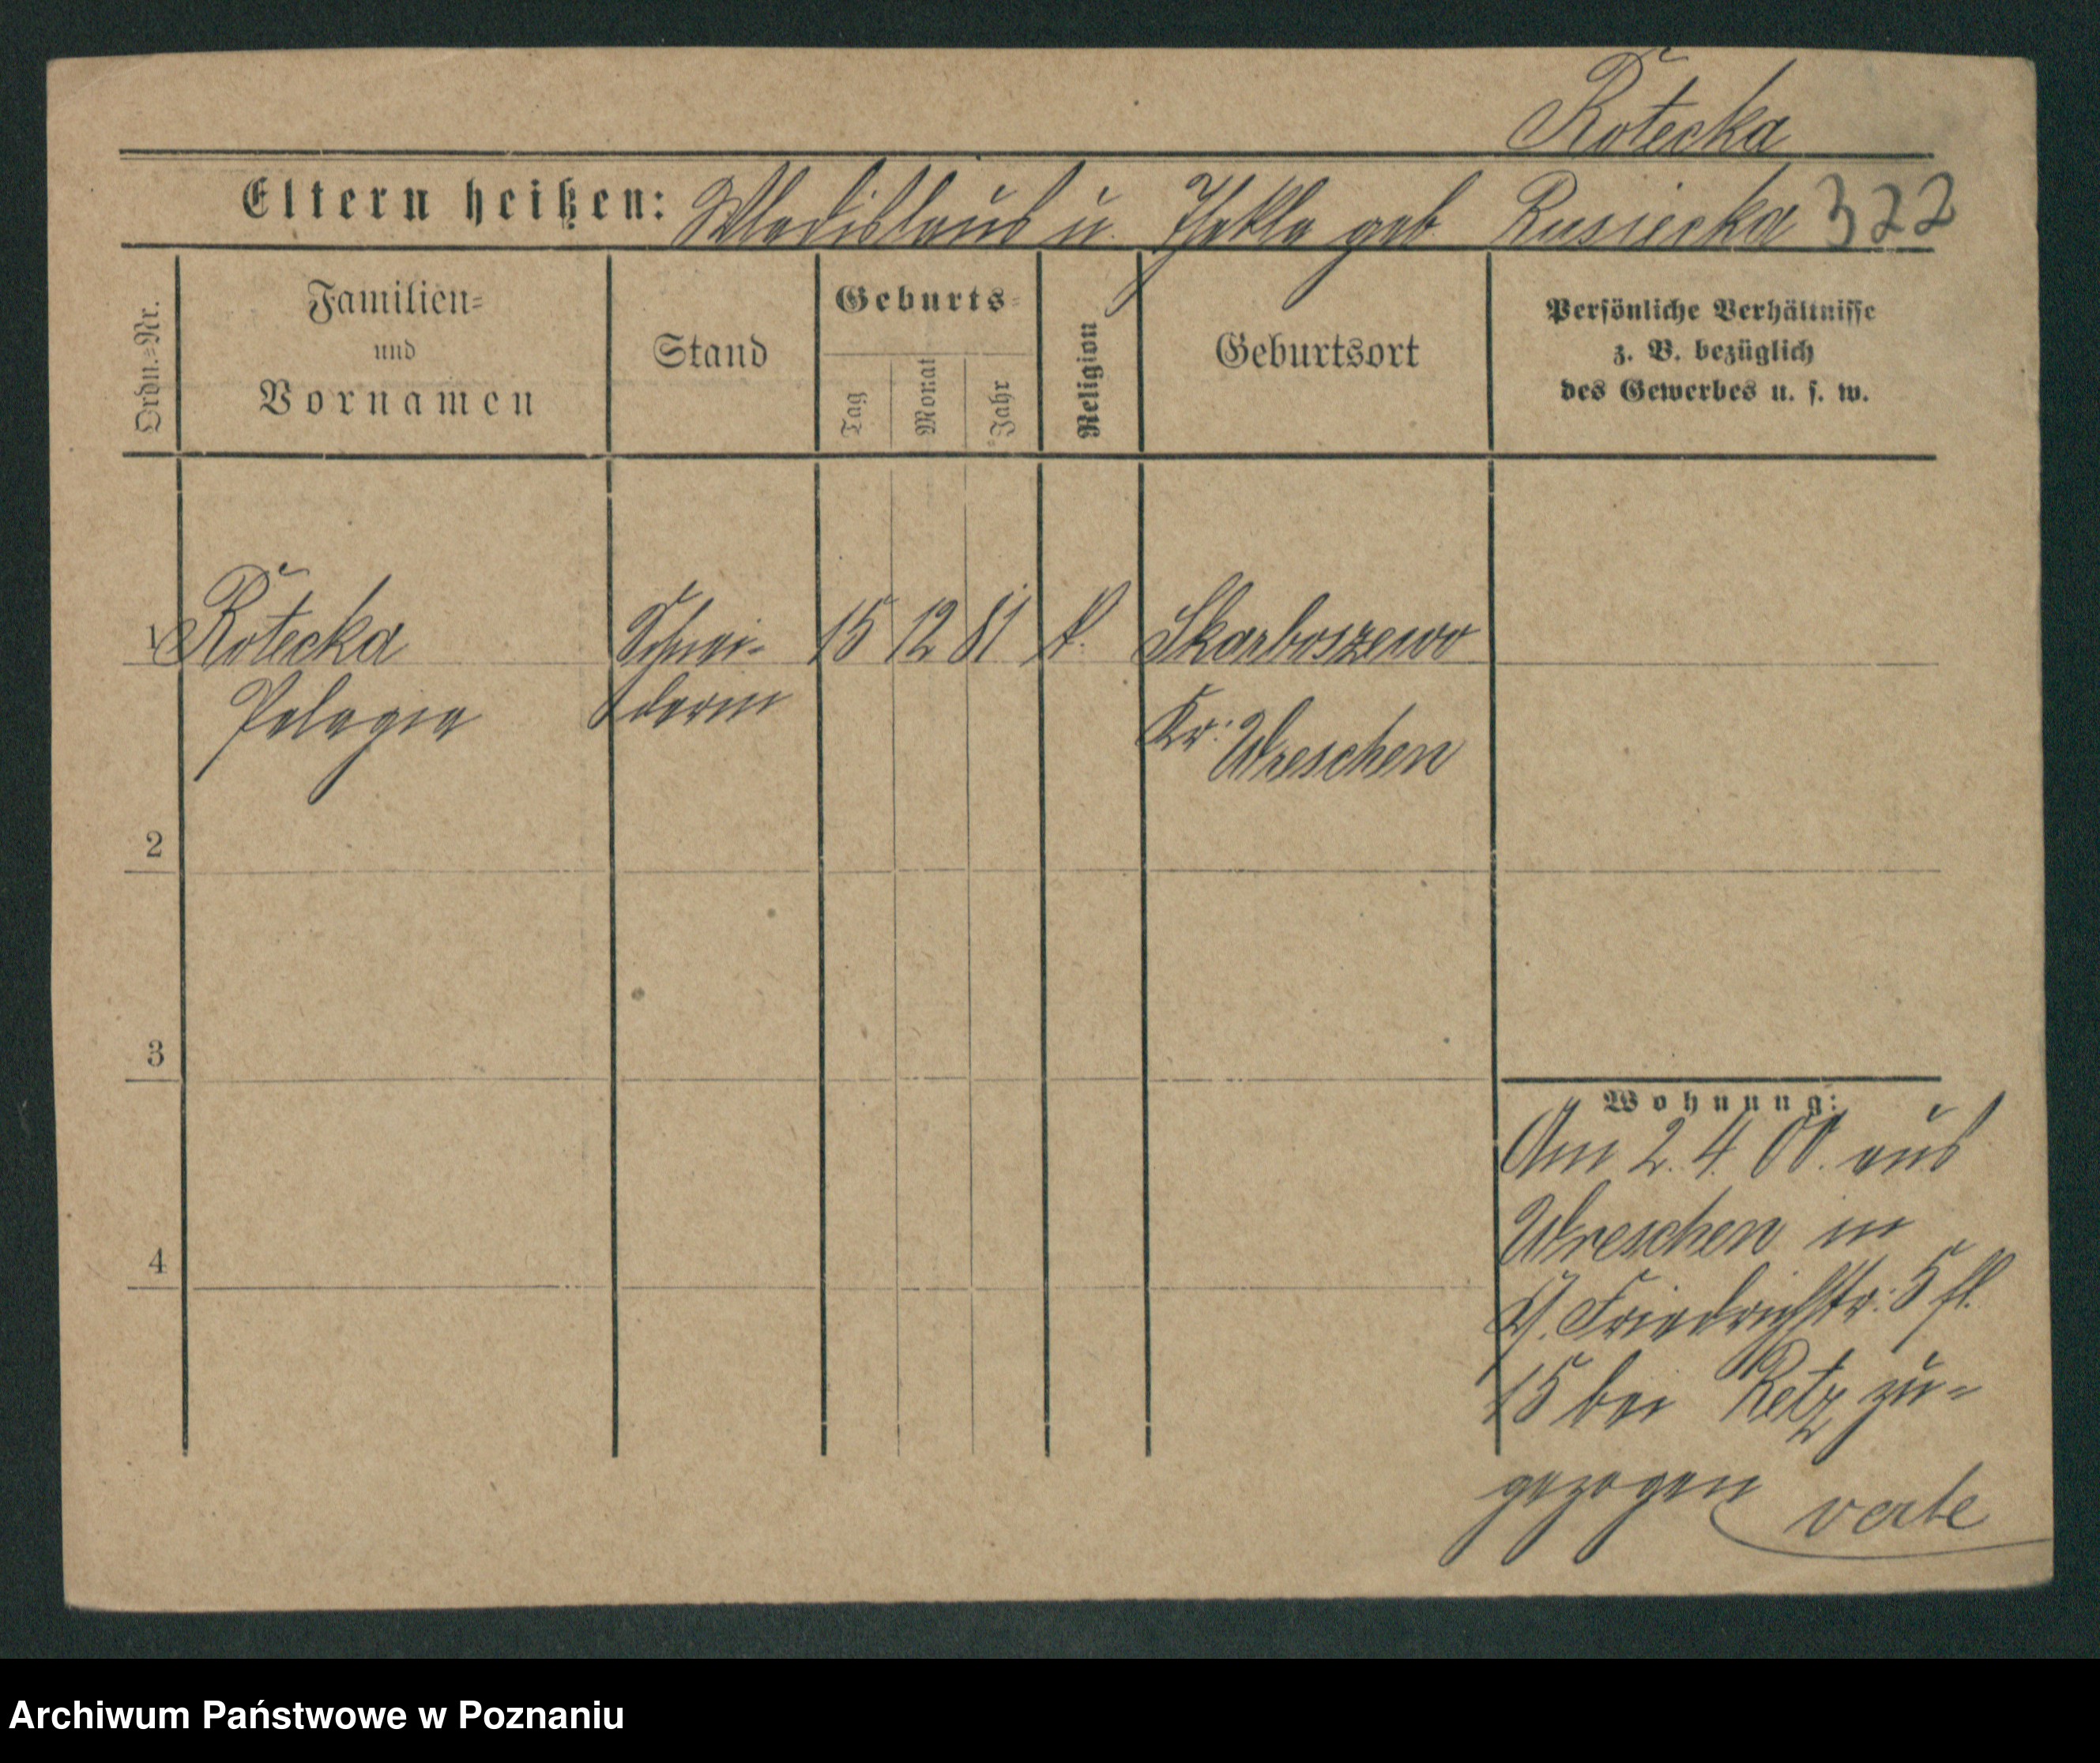 Rotecka
Eltern heißen: Wladislaus u. Thekla geb. Rusiecka 322
Ordn.=Nr.
Familien=
und
Vornamen
Stand
Geburts=
Tag
Monat
Jahr
Religion
Geburtsort
Persönliche Verhältnisse
z. B. bezüglich
des Gewerbes u. s. w.
1 Rotecka Schnei- 15 12 81 k. Skarboszewo
Pelagia derin Kr. Wreschen
2
3
4
Wohnung:
Am 2. 4. 00. aus
Wreschen in
Friedrichstr. 5
15 bei Retz zu=
gezogen verte
Archiwum Państwowe w Poznaniu